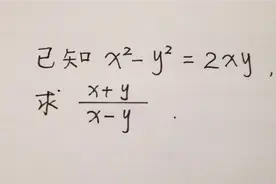 已知 x² - y² = 2xy ,
求 (x+y)/(x-y) .